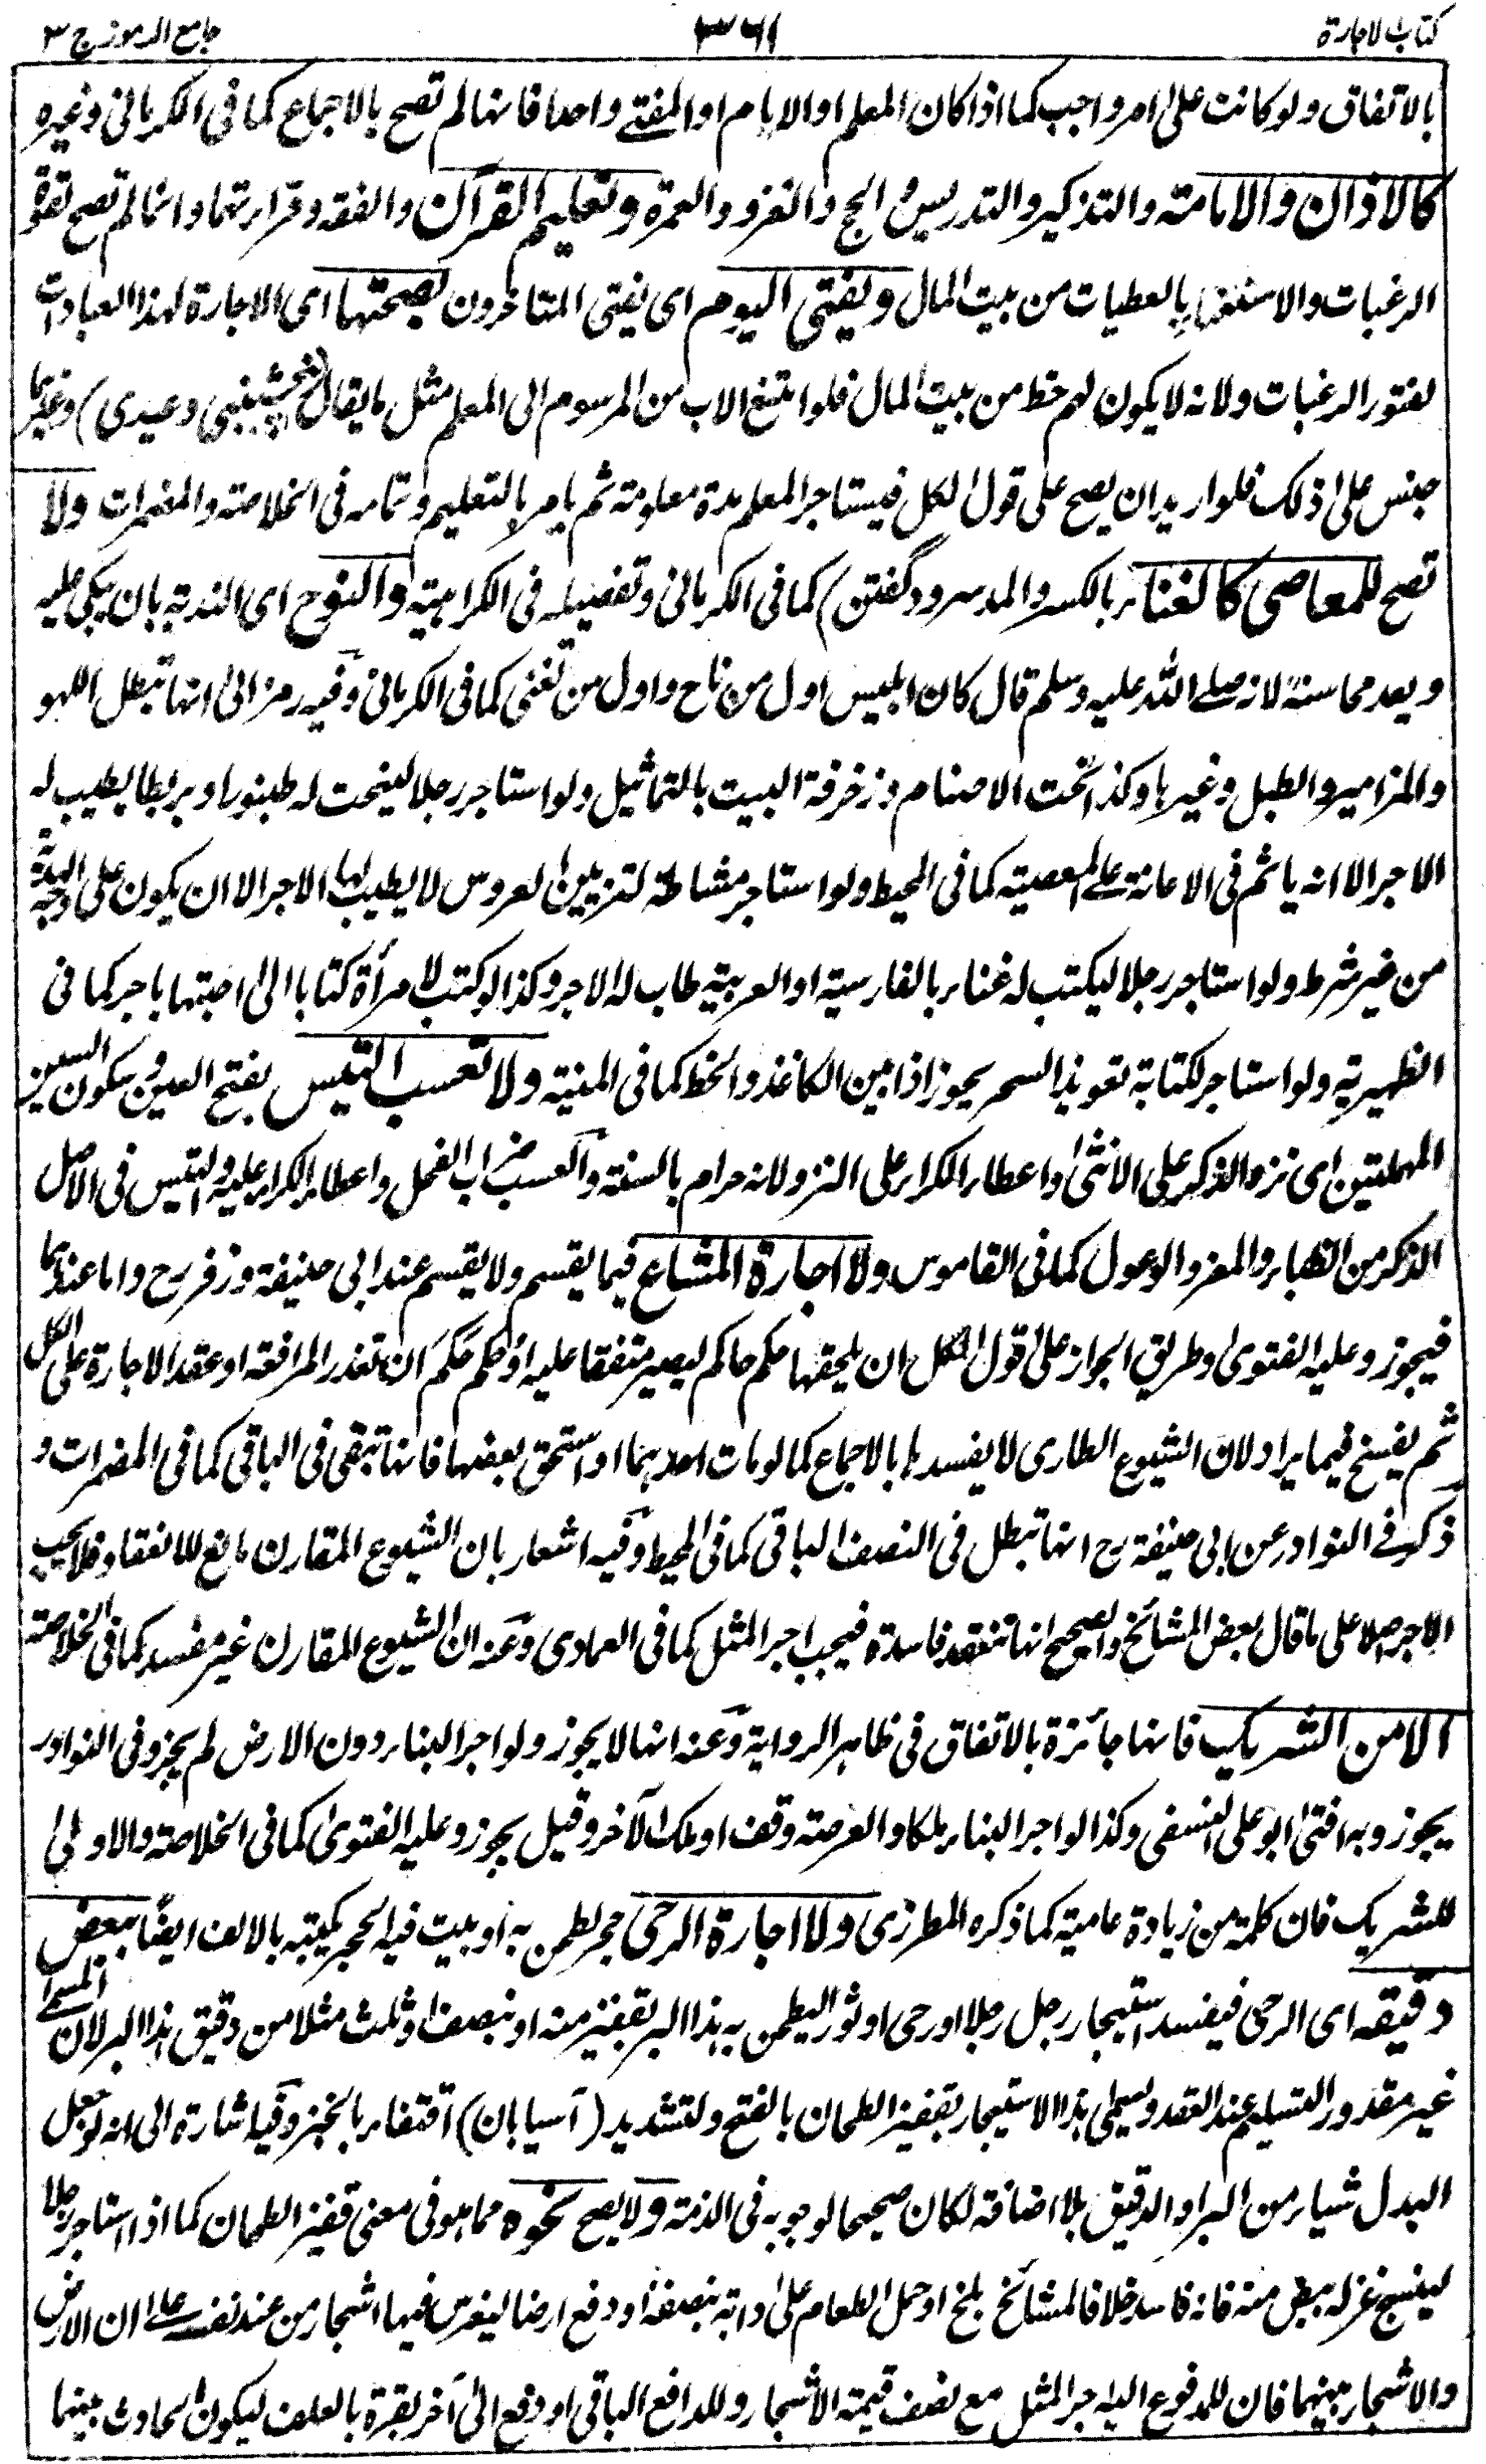 كتاب الاجارة
٣٦١
جامع الرموز ج ٣
بالاتفاق ولو كانت على امر واجب كما اذا كان المعلم او الامام او المفتي واحدا فانها لم تصح بالاجماع كما فى الكرمانى وغيره
كالاذان والامامة والتذكير والتدريس والحج والغزو والعمرة وتعليم القرآن والفقه وقراءتهما وانما لم تصح لقوة
الرغبات والاستغناء بالعطيات من بيت المال ويفتى اليوم اى يفتى المتاخرون بصحتها اى الاجارة لهذا العبادات
لفتور الرغبات ولانه لا يكون لهم حظ من بيت المال فلو امتنع الاب من المرسوم الى المعلم مثل ما يقال (پنجشنبى وعيدى) وغيرهما
حبس على ذلك فلو اريد ان يصح على قول الكل فيستاجر المعلم مدة معلومة ثم يامر بالتعليم وتمامه فى الخلاصة والمضمرات ولا
تصح للمعاصى كالغناء بالكسر والمد سرود گفتن) كما فى الكرمانى وتفصيله فى الكراهية والنوح اى الندبة بان يبكى عليه
ويعد محاسنه لانه صلے الله عليه وسلم قال كان ابليس اول من ناح واول من تغنى كما فى الكرمانى وفيه رمز الى انها تبطل اللهو
والمزامير والطبل وغيرها وكذا نحت الاصنام وزخرفة البيت بالتماثيل ولو استاجر رجلا لينحت له طنبورا او بربطا يطيب له
الاجر الا انه ياثم فى الاعانة على المعصية كما فى المحيط ولو استاجر مشاطة لتزيين العروس لا يطيب لها الاجر الا ان يكون على وجه الهدية
من غير شرط ولو استاجر رجلا ليكتب له غناء بالفارسية او العربية طاب له الاجر وكذا لو كتب لامرأة كتابا الى احبتها باجر كما فى
الظهيرية ولو استاجر لكتابة تعويذ السحر يجوز اذا بين الكاغذ والخط كما فى المنية ولا لعسب التيس بفتح العين وسكون السين
المهملتين اى نزو الذكر على الانثى واعطاء الكراء على النزو لانه حرام بالسنة والعسب ضراب الفحل واعطاء الكراء عليه والتيس فى الاصل
الذكر من الظباء والمعز والوعول كما فى القاموس ولا اجارة المشاع فيما يقسم ولا يقسم عند ابى حنيفة وزفر رح واما عندهما
فيجوز وعليه الفتوى وطريق الجواز على قول الكل ان يلحقها حكم حاكم ليصير متفقا عليه او حكم محكم ان تعذر المرافعة او عقد الاجارة على الكل
ثم يفسخ فيما يراد لان الشيوع الطارى لا يفسدها بالاجماع كما لو مات احدهما او استحق بعضها فانها تبقى فى الباقى كما فى المضمرات و
ذكر فے النوادر عن ابى حنيفة رح انها تبطل فى النصف الباقى كما فى المحيط وفيه اشعار بان الشيوع المقارن مانع للانعقاد فلا يجب
الاجر اصلا على ما قال بعض المشائخ والصحيح انها تنعقد فاسدة فيجب اجر المثل كما فى العمادى وعنه ان الشيوع المقارن غير مفسد كما فى الخلاصة
الا من الشريك فانها جائزة بالاتفاق فى ظاهر الرواية وعنه انها لا يجوز ولو اجر البناء دون الارض لم يجز وفى النوادر
يجوز وبه افتى ابو على النسفى وكذا لو اجر البناء ملكا والعرصة وقف او ملك الآخر وقيل يجوز وعليه الفتوى كما فى الخلاصة والاولى
للشريك فان كلمة من زيادة عامية كما ذكره المطرزى ولا اجارة الرحى حجر لطحن به او بيت فيه الحجر يكتبه بالالف ايضا ببعض
دقيقه اى الرحى فيفسد استيجار رجل رجلا او رحى او ثور اليطحن به هذا البر بقفيز منه او بنصف او ثلث مثلا من دقيق هذا البر لان المسمے
غير مقدور التسليم عند العقد ويسمى هذا الاستيجار بقفيز الطحان بالفتح والتشديد (آسيابان) اقتفاء بالخبر وفيه اشارة الى انه لو جعل
البدل شيا من البر او الدقيق بلا اضافة لكان صحيحا لوجوبه فى الذمة ولا يصح نحوه مما هو فى معنى قفيز الطحان كما اذا استاجر رجلا
لينسج غزله ببعض منه فانه فاسد خلافا لمشائخ بلخ او حمل الطعام على دابة بنصفه او دفع ارضا ليغرس فيها اشجار من عند نفسه علے ان الارض
والاشجار بينهما فان للمدفوع اليه اجر المثل مع نصف قيمة الاشجار وللدافع الباقى او دفع الى آخر بقرة بالعلف ليكون الحادث بينهما